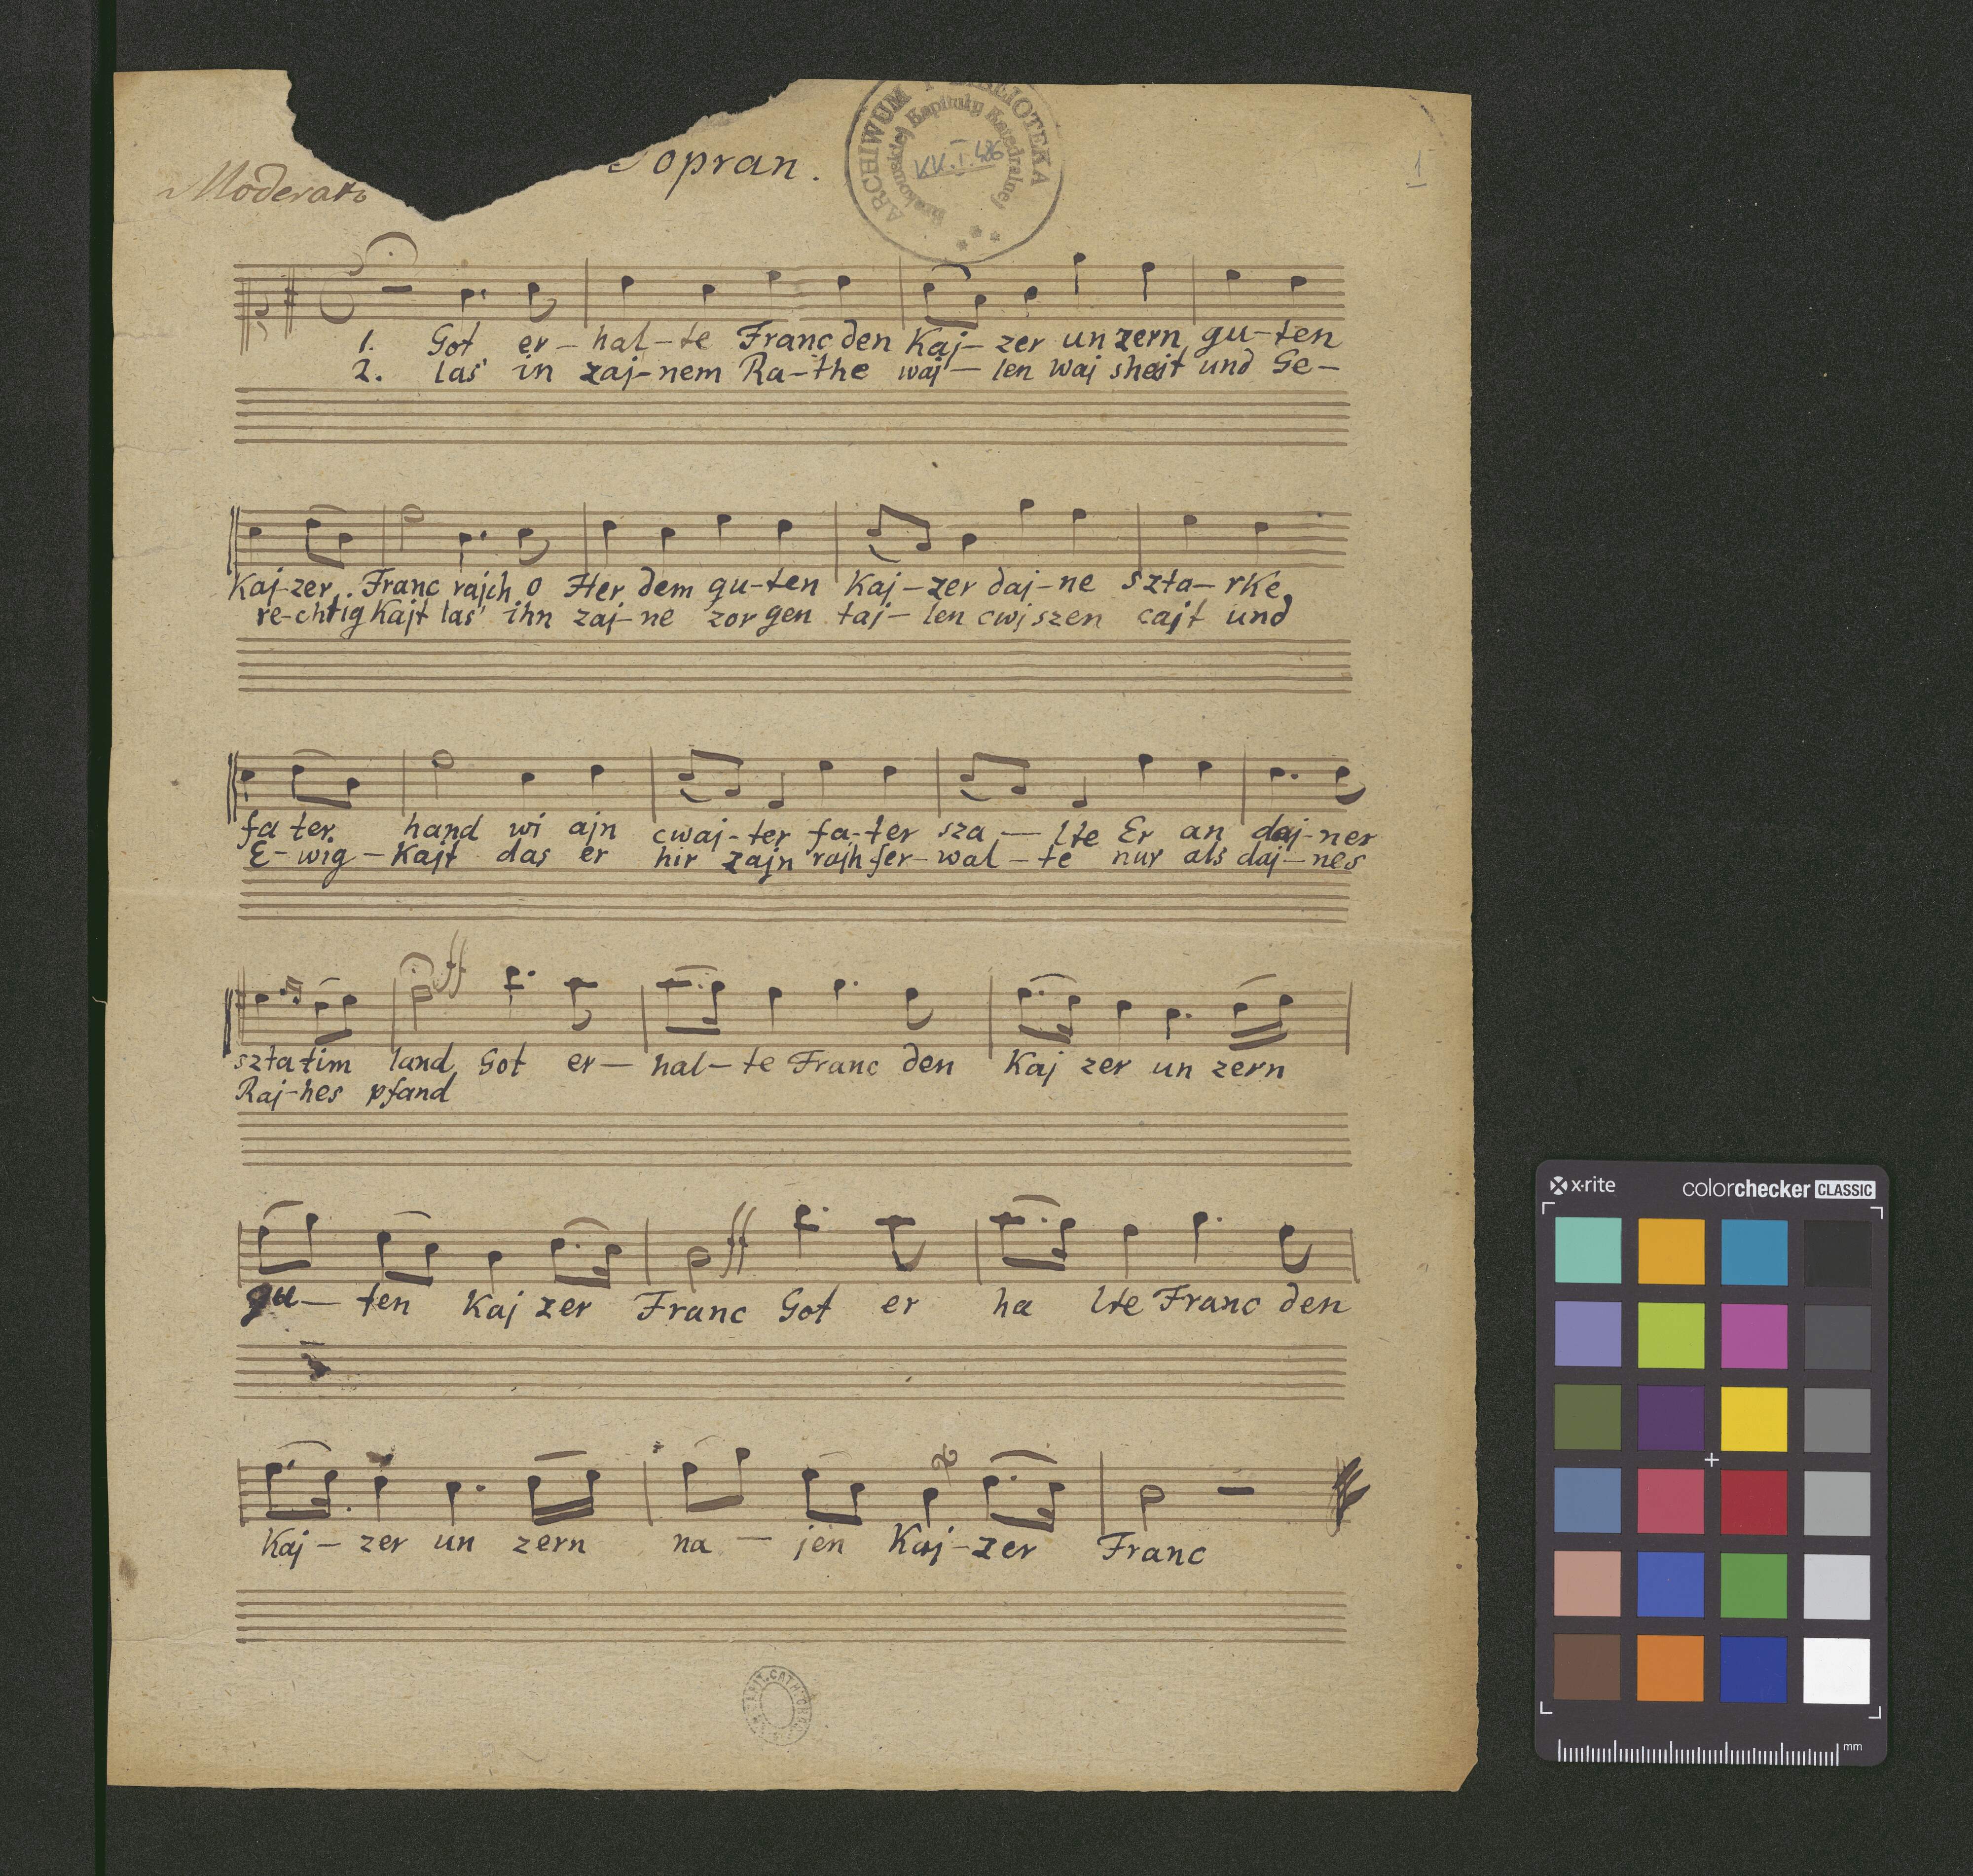 Sopran.
Moderato
ARCHIWUM I BIBLIOTEKA
Krakowskiej Kapituły Katedralnej
KK.I.426
1
1. Got er-hal-te Franc den Kaj-zer un zern gu-ten
2. las in zaj-nem Ra-the waj-len waj shajt und Ge-
Kaj-zer. Franc rajch o Her dem gu-ten Kaj-zer daj-ne szta-rke
re-chtig Kajt las' ihn zaj-ne zor gen taj-len cwi szen cajt und
fa ter. hand wi ajn cwaj-ter fa-ter sza-lte Er an daj-ner
E-wig-Kajt das er hir zajn rajh fer-wal-te nur als daj-nes
ff
szta tim land Got er-hal-te Franc den Kaj zer un zern
Raj-hes pfand
ff
gu-ten Kaj zer Franc Got er ha lte Franc den
Kaj-zer un zern na-jen Kaj-zer Franc
x-rite
colorchecker CLASSIC
mm